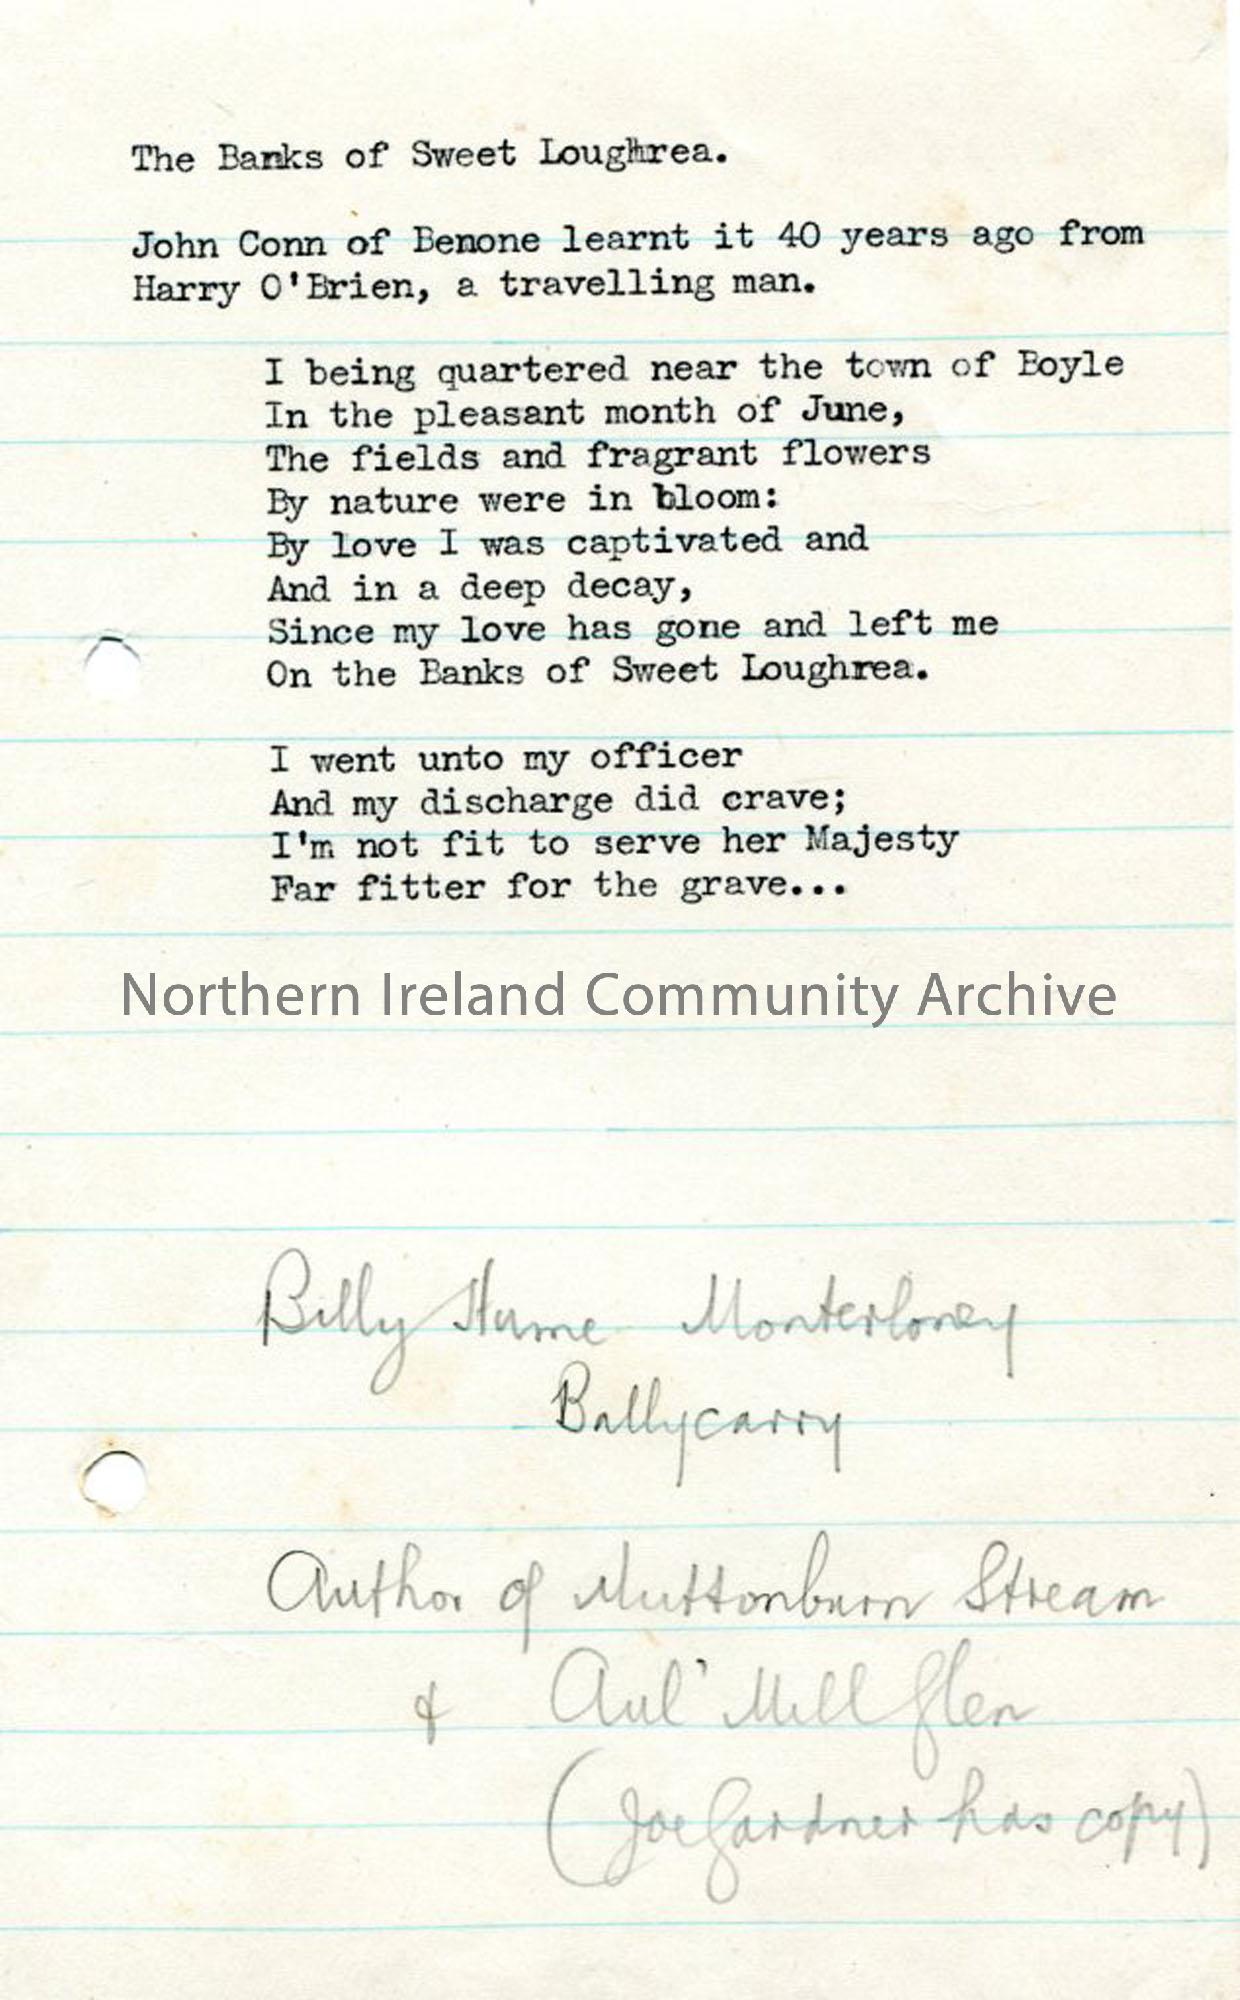 The Banks of Sweet Loughrea.
John Conn of Benone learnt it 40 years ago from
Harry O'Brien, a travelling man.
I being quartered near the town of Boyle
In the pleasant month of June,
The fields and fragrant flowers
By nature were in bloom:
By love I was captivated and
And in a deep decay,
Since my love has gone and left me
On the Banks of Sweet Loughrea.
I went unto my officer
And my discharge did crave;
I'm not fit to serve her Majesty
Far fitter for the grave...
Northern Ireland Community Archive
Billy Hume Monterloney
Ballycarry
Author of Muttonburn Stream
& Aul' Mill Glen
(Joe Gardner has copy)